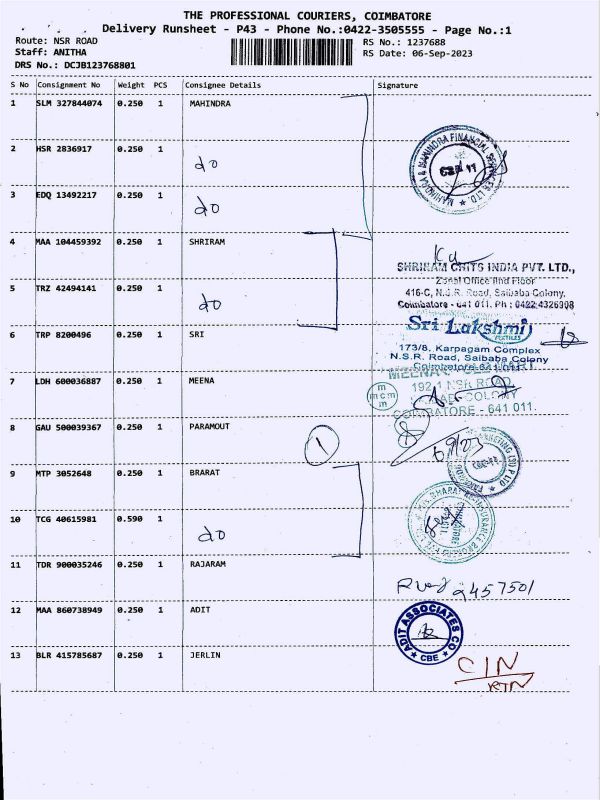 THE PROFESSIONAL COURIERS, COIMBATORE
Delivery Runsheet - P43 - Phone No.:0422-3505555 - Page No.:1
Route: NSR ROAD
RS No.: 1237688
Staff: ANITHA
RS Date: 06-Sep-2023
DRS No.: DCJB123768801
S No Consignment No Weight PCS Consignee Details Signature
1 SLM 327844074 0.250 1 MAHINDRA
2 HSR 2836917 0.250 1 do
MAHINDRA & MAHINDRA FINANCIAL SERVICES LTD.
3 EDQ 13492217 0.250 1 do
4 MAA 104459392 0.250 1 SHRIRAM
SHRIRAM CHITS INDIA PVT. LTD.,
Zonal Office IInd Floor
5 TRZ 42494141 0.250 1 do
416-C, N.S.R. Road, Saibaba Colony,
Coimbatore - 641 011. Ph : 0422-4326908
6 TRP 8200496 0.250 1 SRI
Sri Lakshmi
TEXTILES
173/8, Karpagam Complex
N.S.R. Road, Saibaba Colony
Coimbatore
7 LDH 600036887 0.250 1 MEENA
m
m c m
m
192,1 NSR ROAD
COLONY
COIMBATORE - 641 011.
8 GAU 500039367 0.250 1 PARAMOUT
1
6/9/23
9 MTP 3052648 0.250 1 BRARAT
10 TCG 40615981 0.590 1 do
11 TDR 900035246 0.250 1 RAJARAM
2457501
12 MAA 860738949 0.250 1 ADIT
ADIT ASSOCIATES CO
CBE
13 BLR 415785687 0.250 1 JERLIN
CIN
RTN